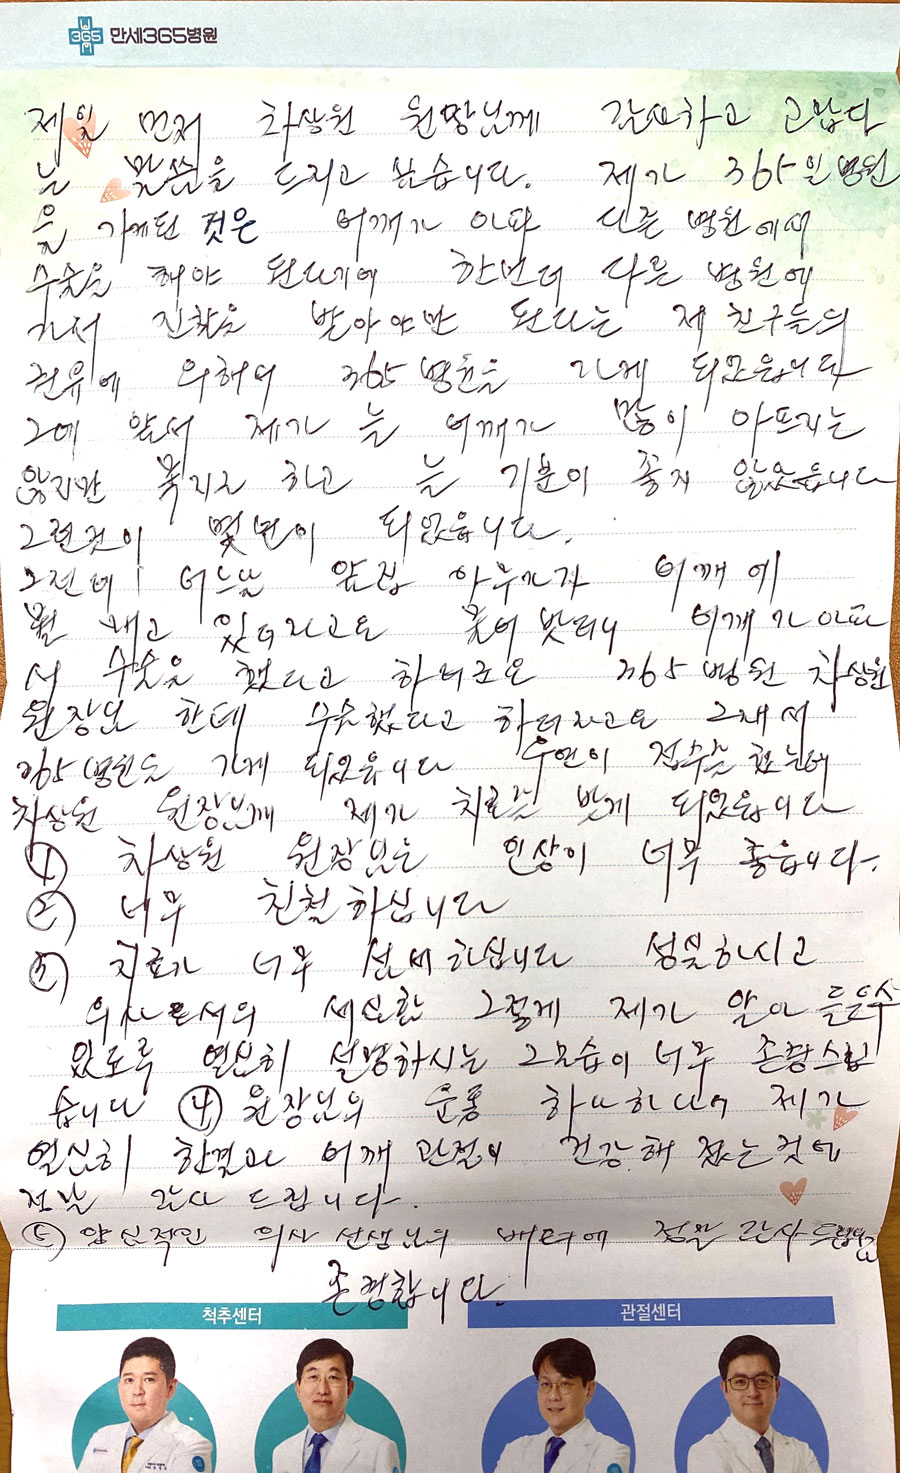 365
만세365병원
제일 먼저 차상원 원장님께 감사하고 고맙다
는 말씀을 드리고 싶습니다. 제가 365일 병원
을 가게된 것은 어깨가 아파 다른 병원에서
수숫을 해야 된다기에 한번더 다른 병원에
가서 진찰을 받아야만 된다는 제 친구들의
권유에 의하여 365 병원을 가게 되었읍니다
그에 앞서 제가 늘 어깨가 많이 아프지는
않지만 묵지근 하고 늘 기분이 좋지 않았읍니다
그런것이 몇년이 되었읍니다.
그런데 어느날 앞집 아무개가 어깨에
뭘 메고 있더라고요 물어 봣더니 어깨가 아파
서 수숫을 했다고 하더군요 365 병원 차상원
원장님 한테 수숫했다고 하더라고요 그래서
365 병원을 가게 되었읍니다 우연이 접수를 했는데
차상원 원장님께 제가 치료를 받게 되었읍니다
① 차상원 원장님은 인상이 너무 좋읍니다.
② 너무 친철하십니다
③ 치료가 너무 섬세하십니다 성실하시고
의사로서의 세심함 그렇게 제가 알아 들을수
있도록 열심히 설명하시는 그모습이 너무 존경스럽
습니다 ④ 원장님의 운동 하라하시어 제가
열심히 한결과 어깨 관절이 건강해 졌는것에
정날 감사 드립니다.
⑤ 양심적인 의사 선생님의 배려에 정말 감사드립니다
존경합니다.
척추센터
관절센터